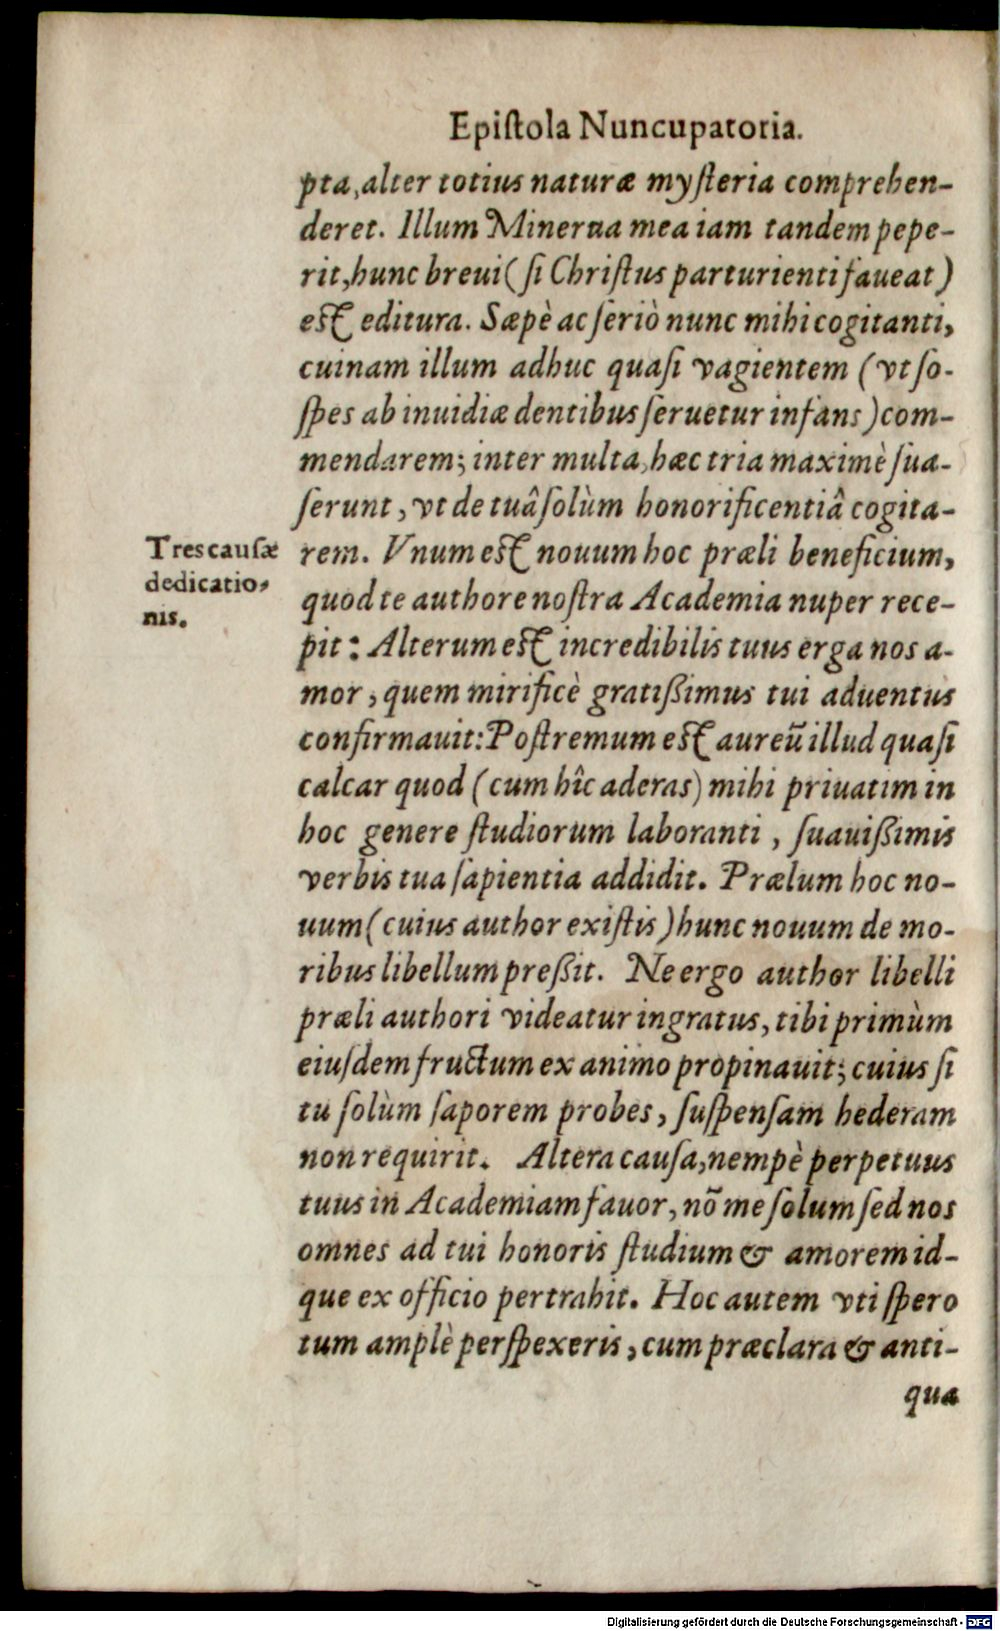 Epiſtola Nuncupatoria.
pta, alter totius naturæ myſteria comprehen-
deret. Illum Minerua mea iam tandem pepe-
rit, hunc breui (ſi Chriſtus parturienti faueat)
eſt editura. Sæpè ac ſeriò nunc mihi cogitanti,
cuinam illum adhuc quaſi vagientem (vt ſo-
ſpes ab inuidiæ dentibus ſeruetur infans) com-
mendarem; inter multa, hæc tria maximè ſua-
ſerunt, vt de tuâ ſolùm honorificentiâ cogita-
Tres cauſæ
dedicatio-
nis.
rem. Vnum eſt nouum hoc præli beneficium,
quod te authore noſtra Academia nuper rece-
pit: Alterum eſt incredibilis tuus erga nos a-
mor, quem mirificè gratißimus tui aduentus
confirmauit: Poſtremum eſt aureū illud quaſi
calcar quod (cum hîc aderas) mihi priuatim in
hoc genere ſtudiorum laboranti, ſuauißimis
verbis tua ſapientia addidit. Prælum hoc no-
uum (cuius author exiſtis) hunc nouum de mo-
ribus libellum preßit. Ne ergo author libelli
præli authori videatur ingratus, tibi primùm
eiuſdem fructum ex animo propinauit; cuius ſi
tu ſolùm ſaporem probes, ſuſpenſam hederam
non requirit. Altera cauſa, nempè perpetuus
tuus in Academiam fauor, nō me ſolum ſed nos
omnes ad tui honoris ſtudium & amorem id-
que ex officio pertrahit. Hoc autem vti ſpero
tum amplè perſpexeris, cum præclara & anti-
qua
Digitalisierung gefördert durch die Deutsche Forschungsgemeinschaft - DFG